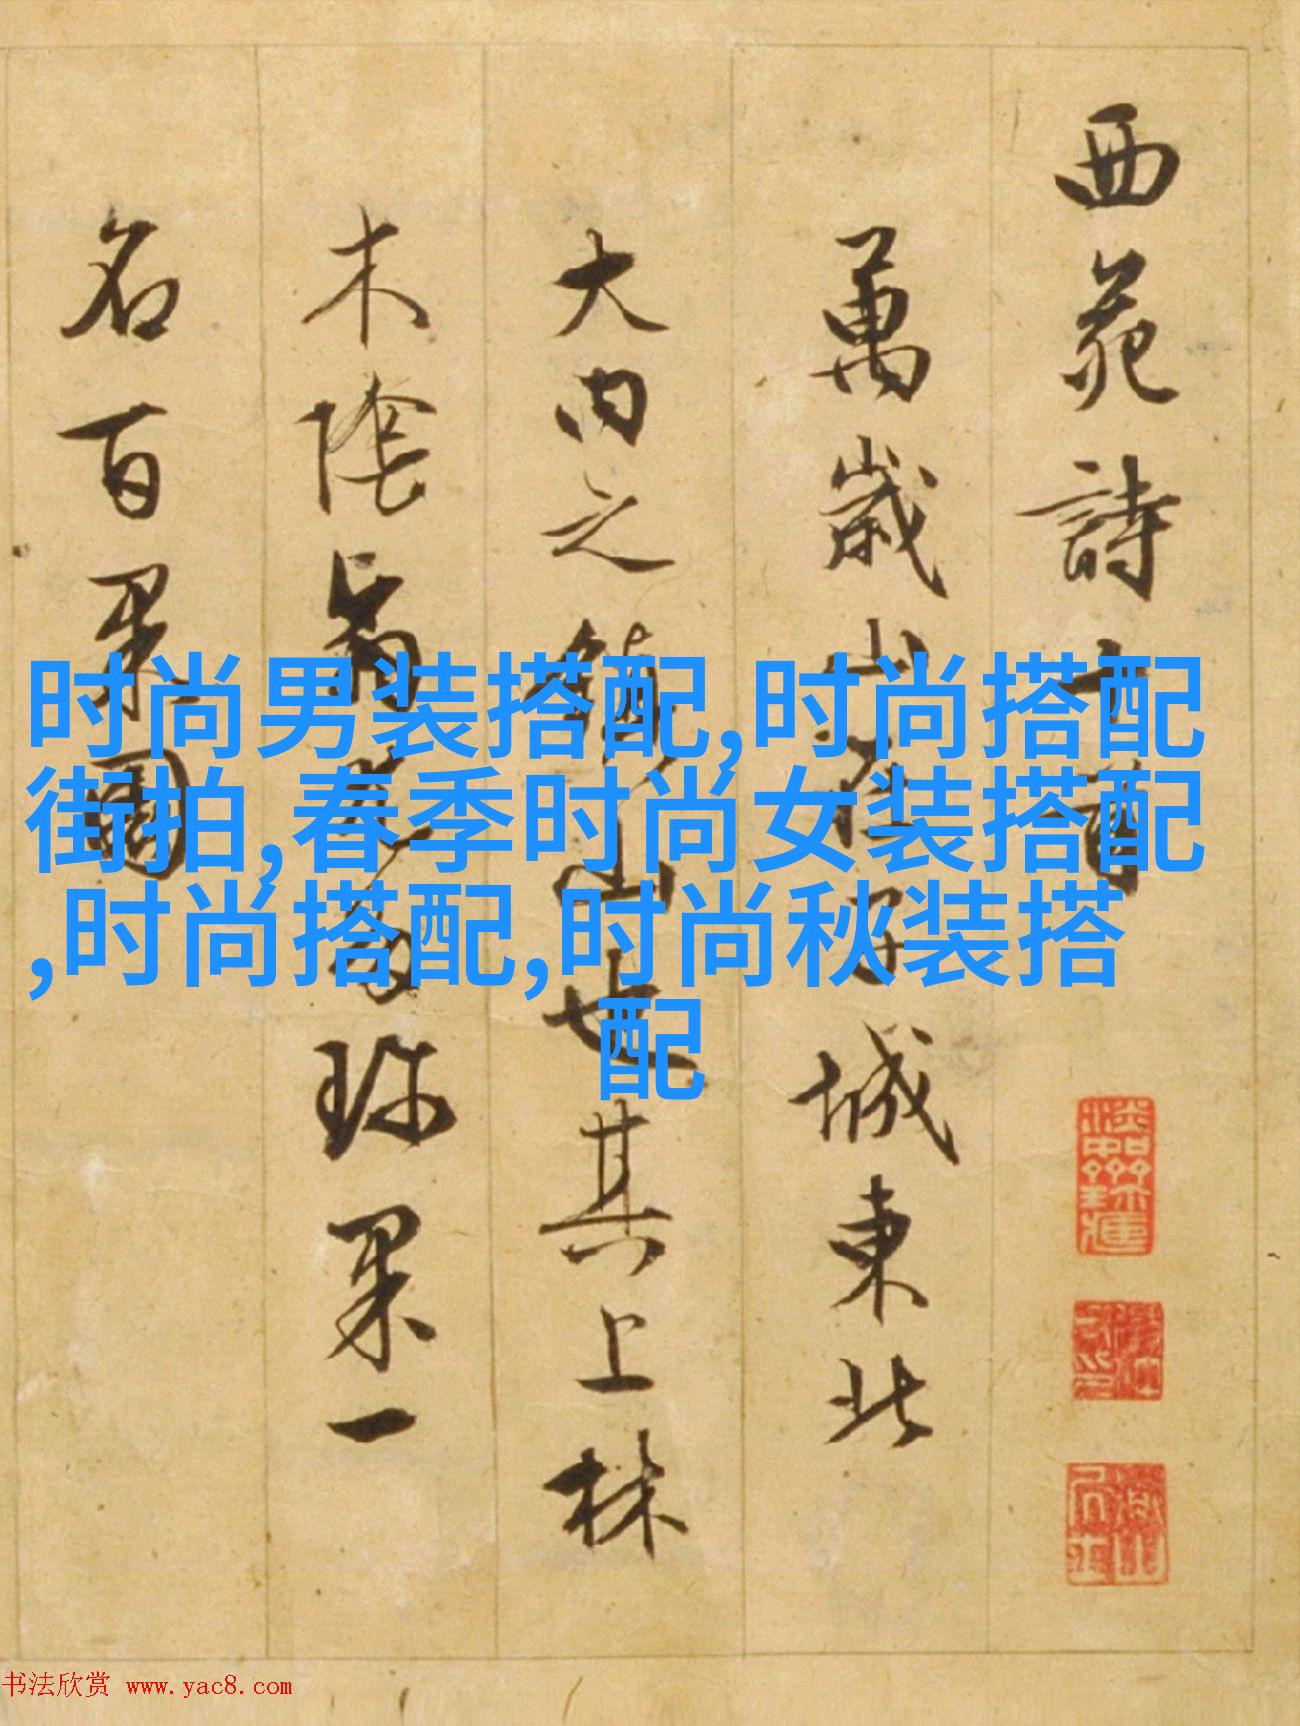 西苑詩十首
萬歲山在子城東北
大内之鎮山也其上林
木陰翳尤多珍果一
名百果園
时尚男装搭配,时尚搭配
街拍,春季时尚女装搭配
,时尚搭配,时尚秋装搭
配
书法欣赏 www.yac8.com